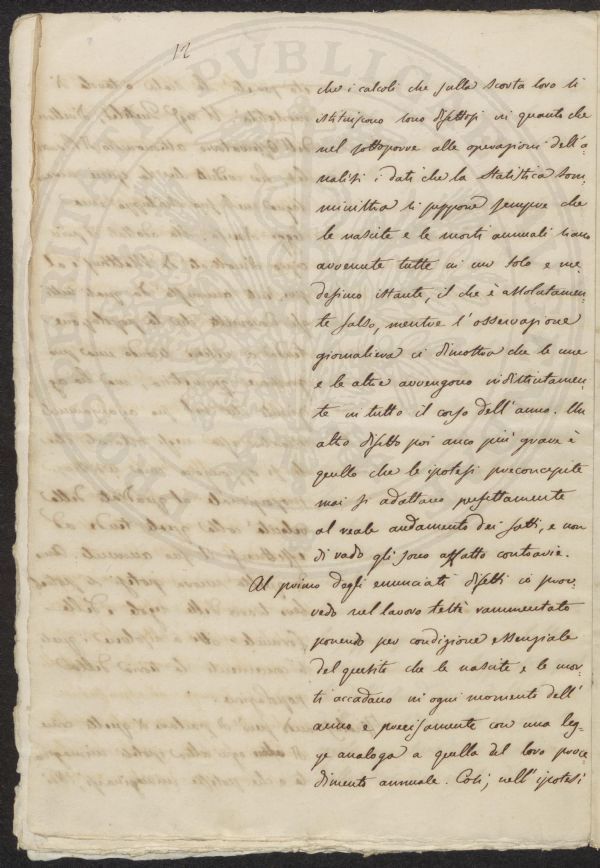 12
che i calcoli che sulla scorta loro si
stituiscono sono difettosi in quanto che
nel sottoporre alle operazioni dell'a-
nalisi i dati che la statistica som-
ministra si suppone sempre che
le nascite e le morti annuali siano
avvenute tutte in un solo e me-
desimo istante, il che è assolutamen-
te falso, mentre l'osservazione
giornaliera ci dimostra che le une
e le altre avvengono indistintamen-
te in tutto il corso dell'anno. Un
altro difetto poi anco più grave è
quello che le ipotesi preconcepite
mai si adattano perfettamente
al reale andamento dei fatti, e non
di rado gli sono affatto contrarie.
Al primo degli enunciati difetti io prov-
vedo nel lavoro testè rammentato
ponendo per condizione essenziale
del quesito che le nascite e le mor-
ti accadano in ogni momento dell'
anno e precisamente con una leg-
ge analoga a quella del loro proce-
dimento annuale. Così, nell'ipotesi